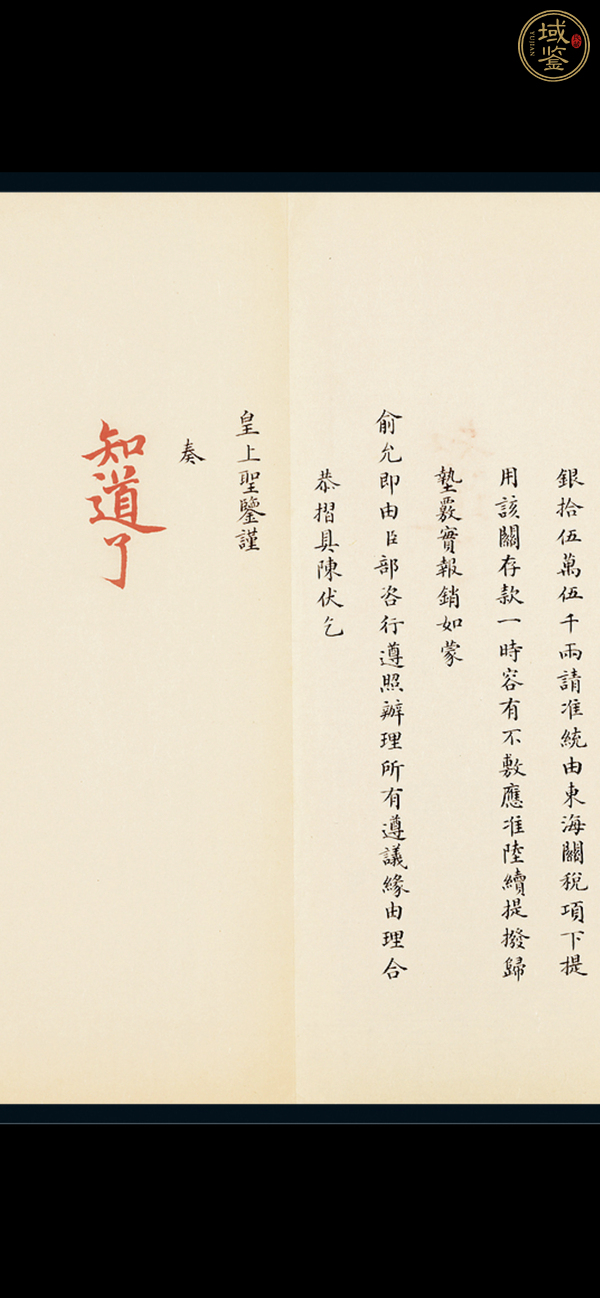 域鉴
YUJIAN
銀拾伍萬伍千兩請准統由東海關稅項下提
用該關存款一時容有不敷應准陸續提撥歸
墊覈實報銷如蒙
俞允即由臣部咨行遵照辦理所有遵議緣由理合
恭摺具陳伏乞
皇上聖鑒謹
奏
知道了